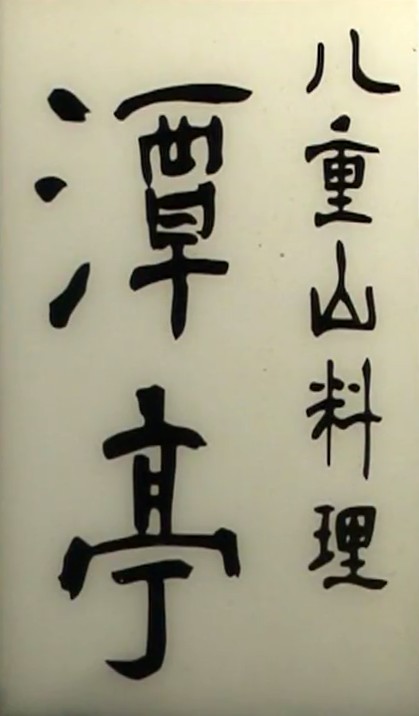 八重山料理
潭亭